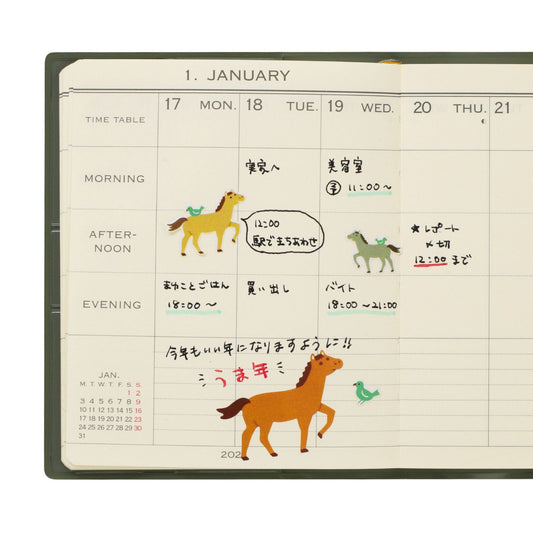 1. JANUARY
TIME TABLE
17 MON.
18 TUE.
19 WED.
20 THU.
21
MORNING
実家へ
美容室
予 11:00〜
AFTER-
NOON
12:00
駅で立ちあわせ
★レポート
〆切
12:00まで
EVENING
まゆことごはん
18:00〜
買い出し
バイト
18:00〜21:00
今年もいい年になりますように!!
うま年
JAN.
M. T. W. T. F. S. S.
1 2
3 4 5 6 7 8 9
10 11 12 13 14 15 16
17 18 19 20 21 22 23
24 25 26 27 28 29 30
31
202